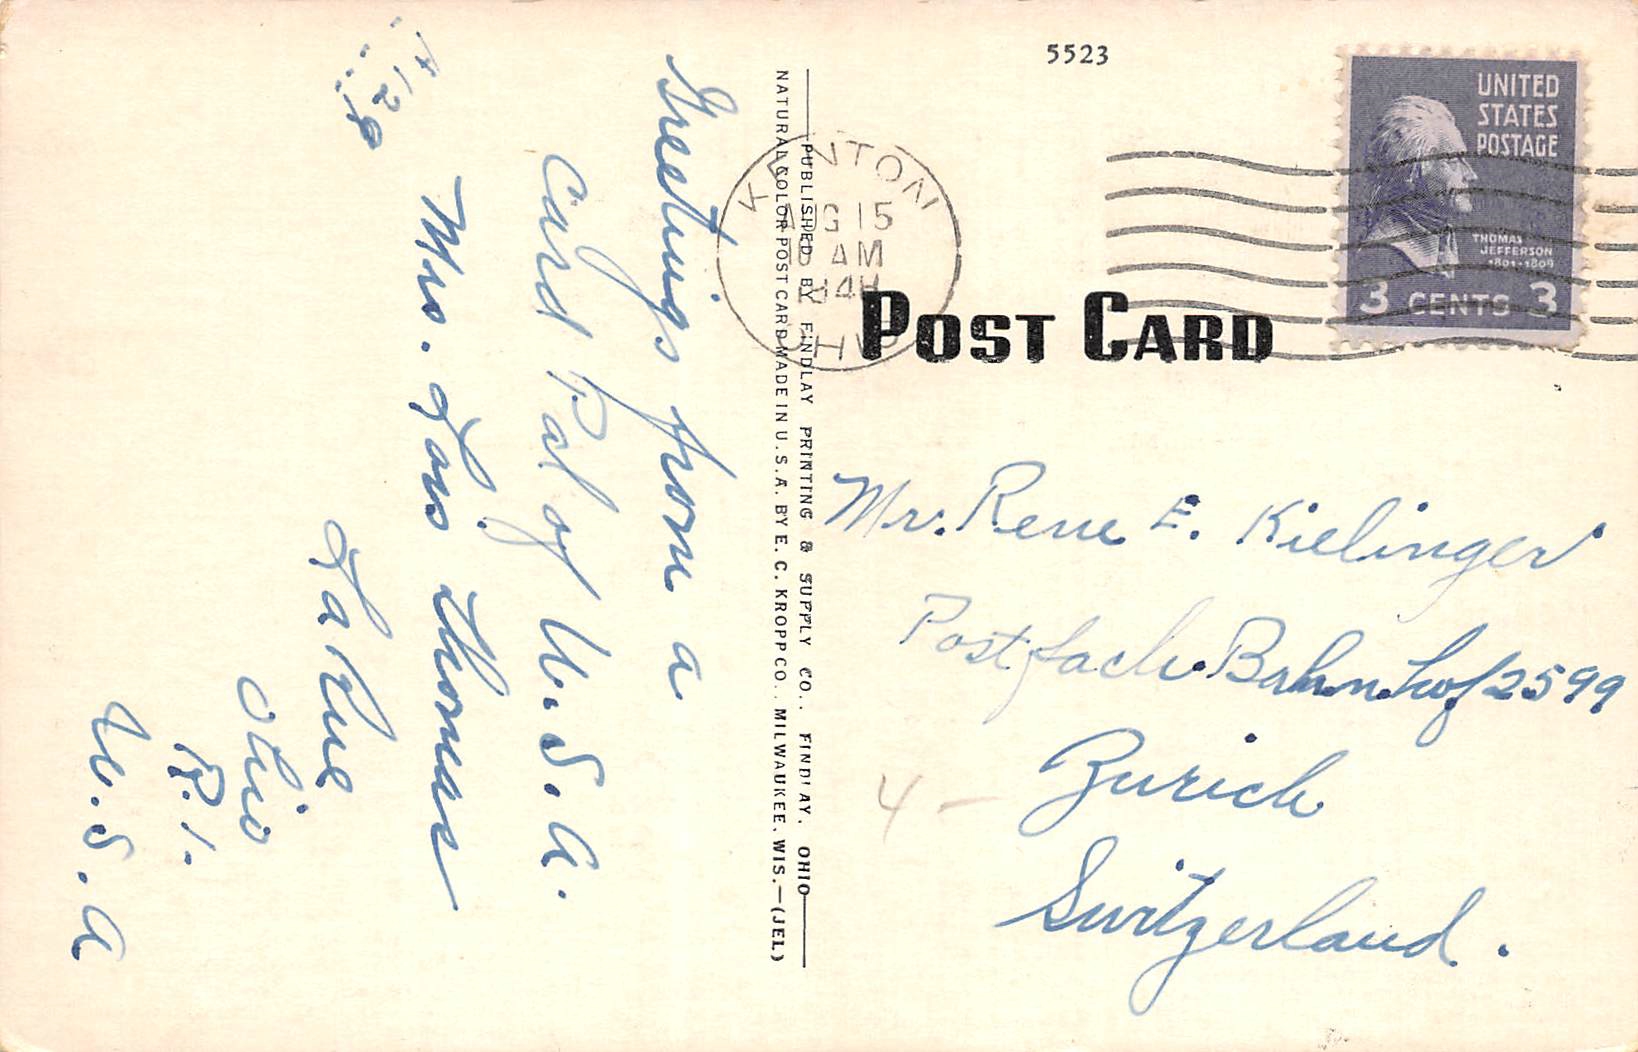 5523
UNITED
STATES
POSTAGE
THOMAS
JEFFERSON
1801-1809
3 CENTS 3
KENTON
AUG 15
AM
OHIO
POST CARD
PUBLISHED BY FINDLAY PRINTING & SUPPLY CO., FINDLAY, OHIO
NATURAL COLOR POST CARD MADE IN U.S.A. BY E. C. KROPP CO., MILWAUKEE, WIS.—(JEL)
Greetings from a
Card Pal of U.S.A.
Mrs. Lois Thomas
La Rue
Ohio
R.1.
U.S.A
Mr. Rene E. Kielinger
Postfach. Bahnhof 2599
Zurich
Switzerland.
4 -